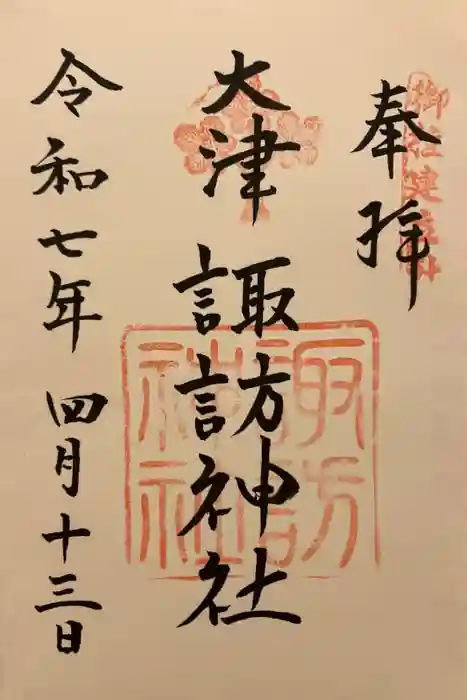 奉拝
大津
諏訪神社
令和七年 四月十三日
諏訪
神社